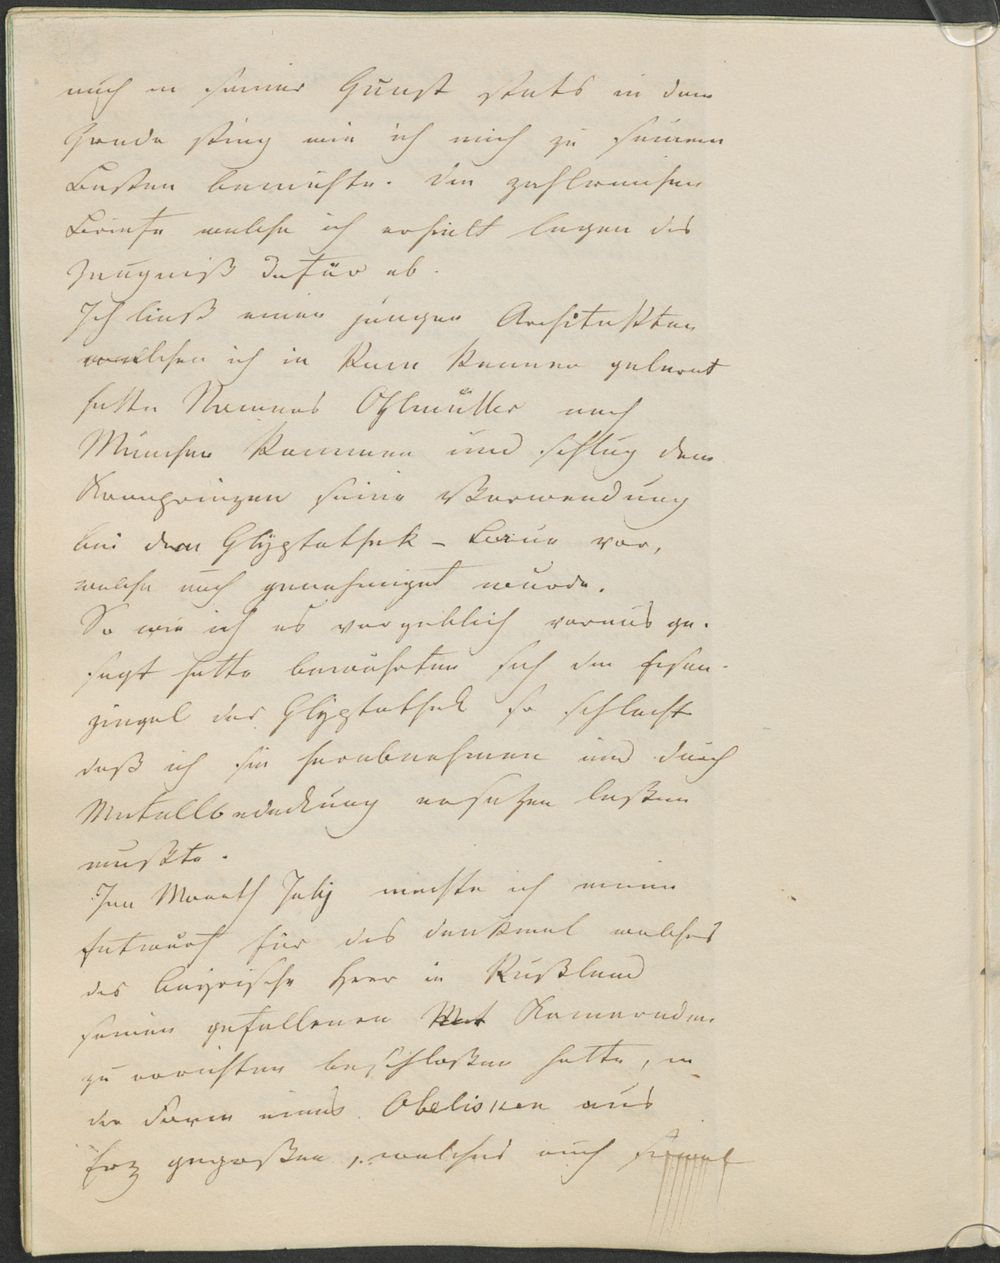 auch in seiner Gunst stets in dem
Grade stieg wie ich mich zu seinem
Besten bemühte. Die zahlreichen
Briefe welche ich erhielt legen des
Zeugniß dafür ab.
Ich ließ einen jungen Architekten
welchen ich in Rom kennen gelernt
hatte Namens Ohlmüller nach
München kommen und schlug dem
Kronprinzen seine Verwendung
bei dem Glyptothek-Baue vor,
welche auch genehmiget wurde.
So wie ich es vergeblich voraus ge-
sagt hatte bewährten sich die
ziegel der Glyptothek so schlecht
daß ich sie herabnehmen und durch
Metallbedeckung ersetzen laßen
mußte.
Im Monath July machte ich einen
Entwurf für das Denkmal welches
das bayrische Heer in Rußland
seinen gefallenen Kameraden
zu errichten beschloßen hatte, in
der Form eines Obelisken aus
Erz gegoßen, welches auch